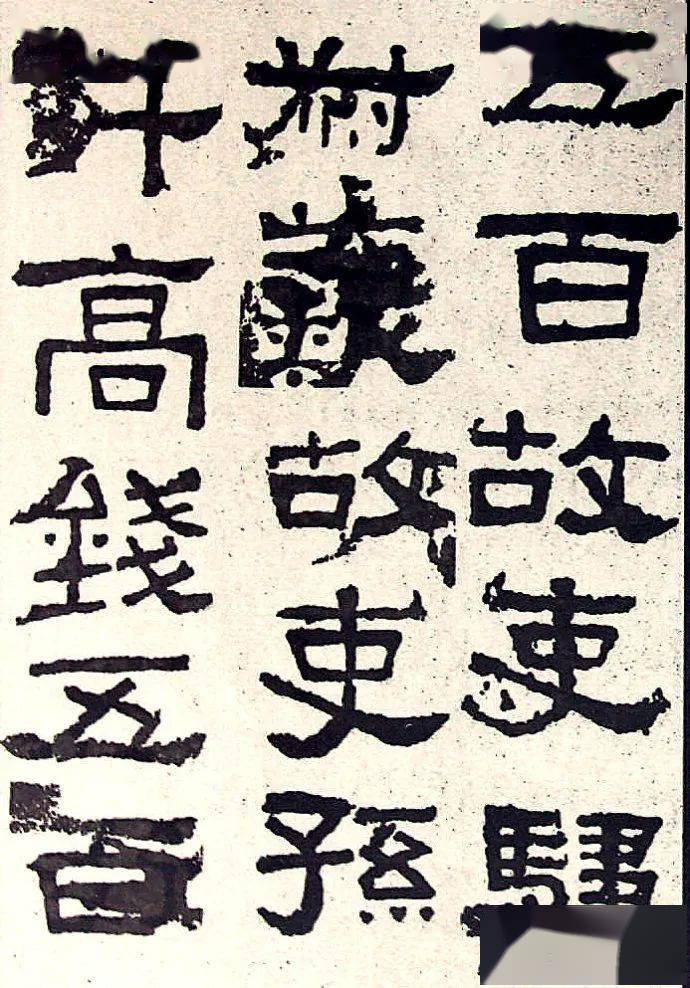 五百故吏
故吏孫
升高錢五百